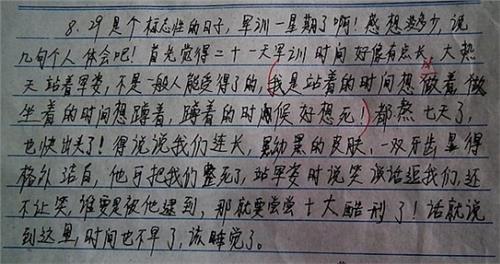 8.29是个标志性的日子，军训一星期了啊！感想没多少，说
几句个人体会吧！首先觉得二十一天军训时间好像有点长，大热
天站着军姿，不是一般人能受得了的，我是站着的时间想坐着，做
坐着的时间想蹲着，蹲着的时候好想死！都熬七天了，
也快出来了！得说说我们连长，黑黝黑的皮肤，一双牙齿显得
格外洁白，他可把我们整死了，站军姿时说笑话逗我们，还
不让笑，谁要是被他逮到，那就要尝尝十大酷刑了！话就说
到这里，时间也不早了，该睡觉了。